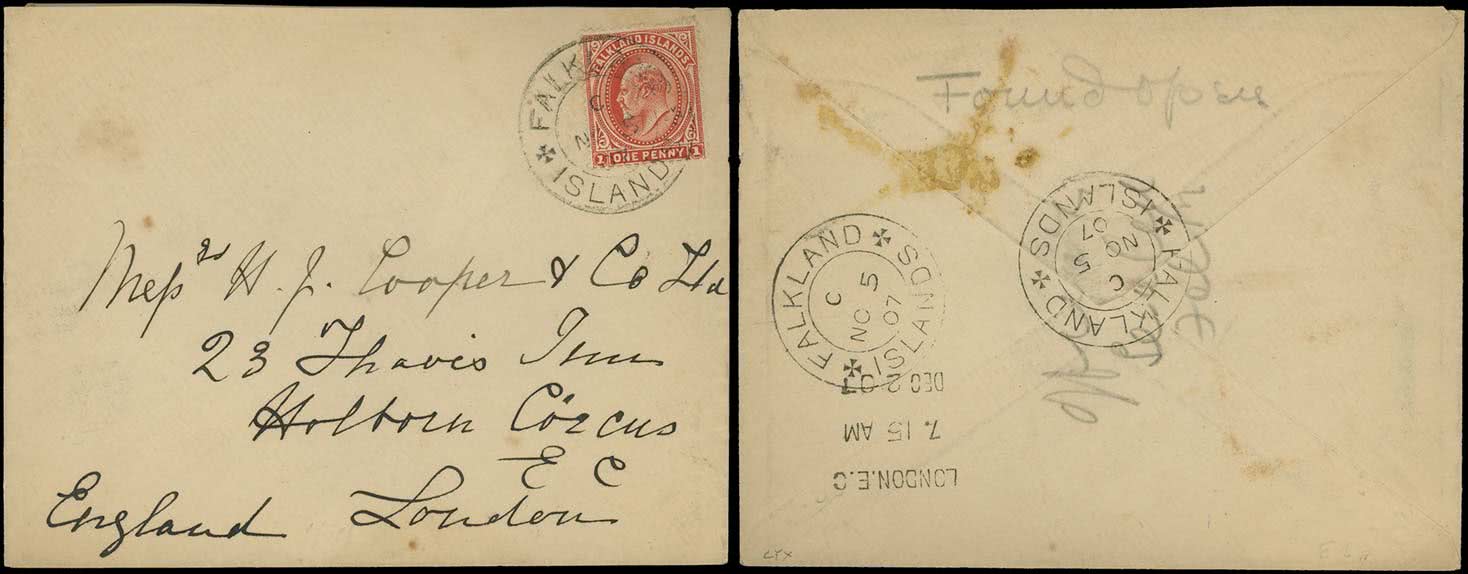 FALKLAND ISLANDS
1 ONE PENNY 1
FALK
C
5
ISLAND
Messrs H. J. Cooper & Co Ltd
23 Thavis Inn
Holborn Circus
E C
England London
Found open
FALKLAND ISLANDS
C
NO 5
07
FALKLAND ISLANDS
C
NO 5
07
LONDON.E.C
7.15 AM
DEC 2 07